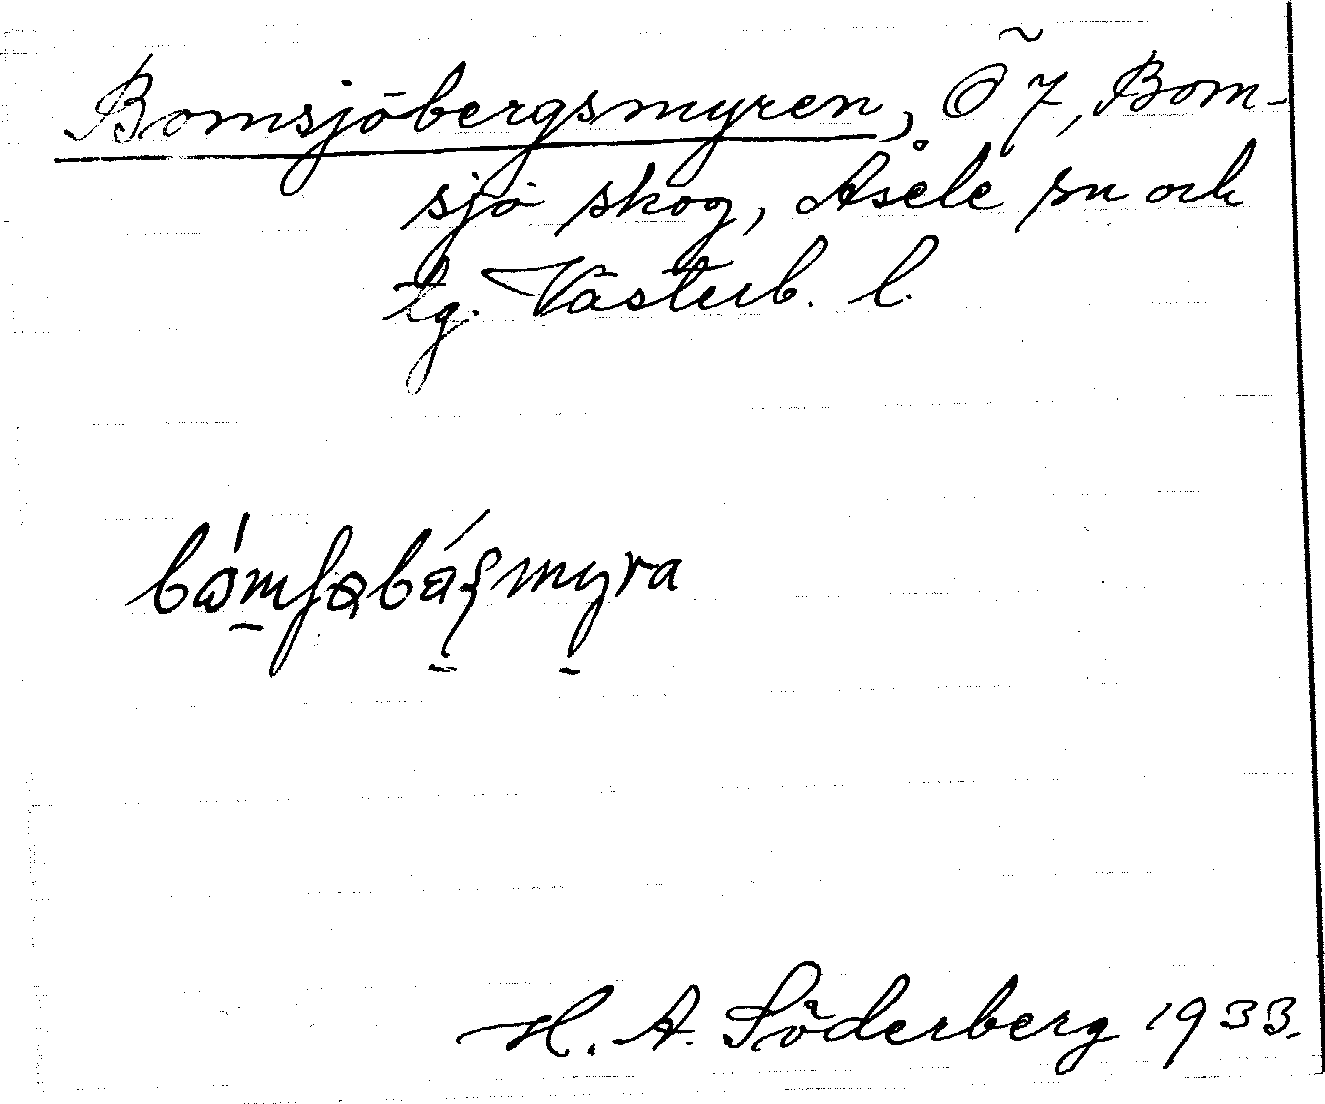 Bomsjöbergsmyren, Ö 7, Bom-
sjö skog, Åsele sn och
lg. Västerb. l.
H. A. Söderberg 1933.